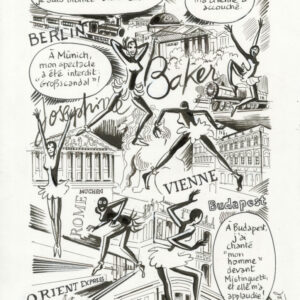 ma chienne a
accouché.
BERLIN
À Münich,
mon spectacle
a été interdit.
"Großscandal"!
Baker
Joséphine
VIENNE
MÜCHEN
ROME
Budapest
A Budapest,
j'ai
chanté
"mon
homme"
devant
Mistinguett,
et elle m'a
applaudie!
ORIENT EXPRESS